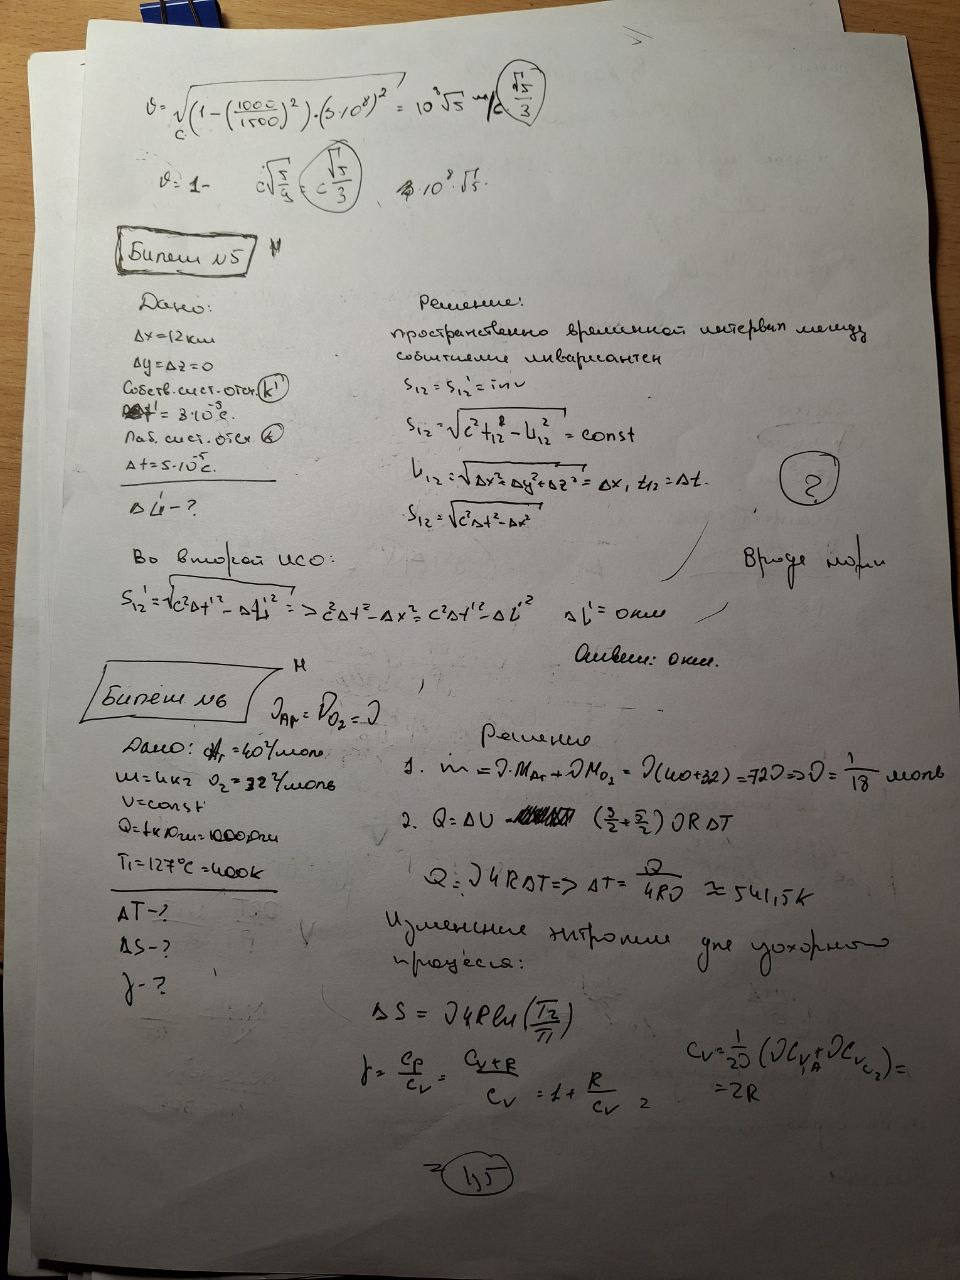 υ = c√(1-(1000/1500)²)·(3·10⁸)² = 10⁸√5 м/с √5/3
υ = 1- c√5/9 = c√5/3 10⁸·√5.
Билет №5 И
Дано:
Δx=12км
Δy=Δz=0
Собств.сист.отсч. k'
= 3·10⁻⁵с.
Лаб. сист. отсч k
Δt=5·10⁻⁵с.
ΔL'-?
Решение:
пространственно временной интервал между
событиями инвариантен
S₁₂ = S₁₂' = inv
S₁₂ = √c²t₁₂² - L₁₂² = const
L₁₂ = √Δx²+Δy²+Δz² = Δx, t₁₂ = Δt.
S₁₂ = √c²Δt²-Δx²
?
Вроде норм
Во второй ИСО:
S₁₂' = √c²Δt'²-ΔL'² => c²Δt²-Δx² = c²Δt'²-ΔL'² ΔL' = 0км
Ответ: 0км.
Билет №6 И
ν_Ar = ν_O₂ = ν
Дано: Ar = 40г/моль
m=4кг O₂ = 32г/моль
V=const
T₁=127°C=400K
ΔT-?
ΔS-?
γ-?
Решение
1. m = ν·M_Ar + νM_O₂ = ν(40+32) = 72ν => ν = 1/18 моль
2. Q = ΔU (3/2+5/2) νRΔT
Q = ν4RΔT => ΔT = Q/4Rν ≈ 541,5K
Изменение энтропии для изохорного
процесса:
ΔS = ν4Rln(T₂/T₁)
γ = Cp/Cv = Cv+R/Cv = 1+ R/Cv =
Cv = 1/2ν (νCv,A + νCv_O₂) =
= 2R
= 1,5